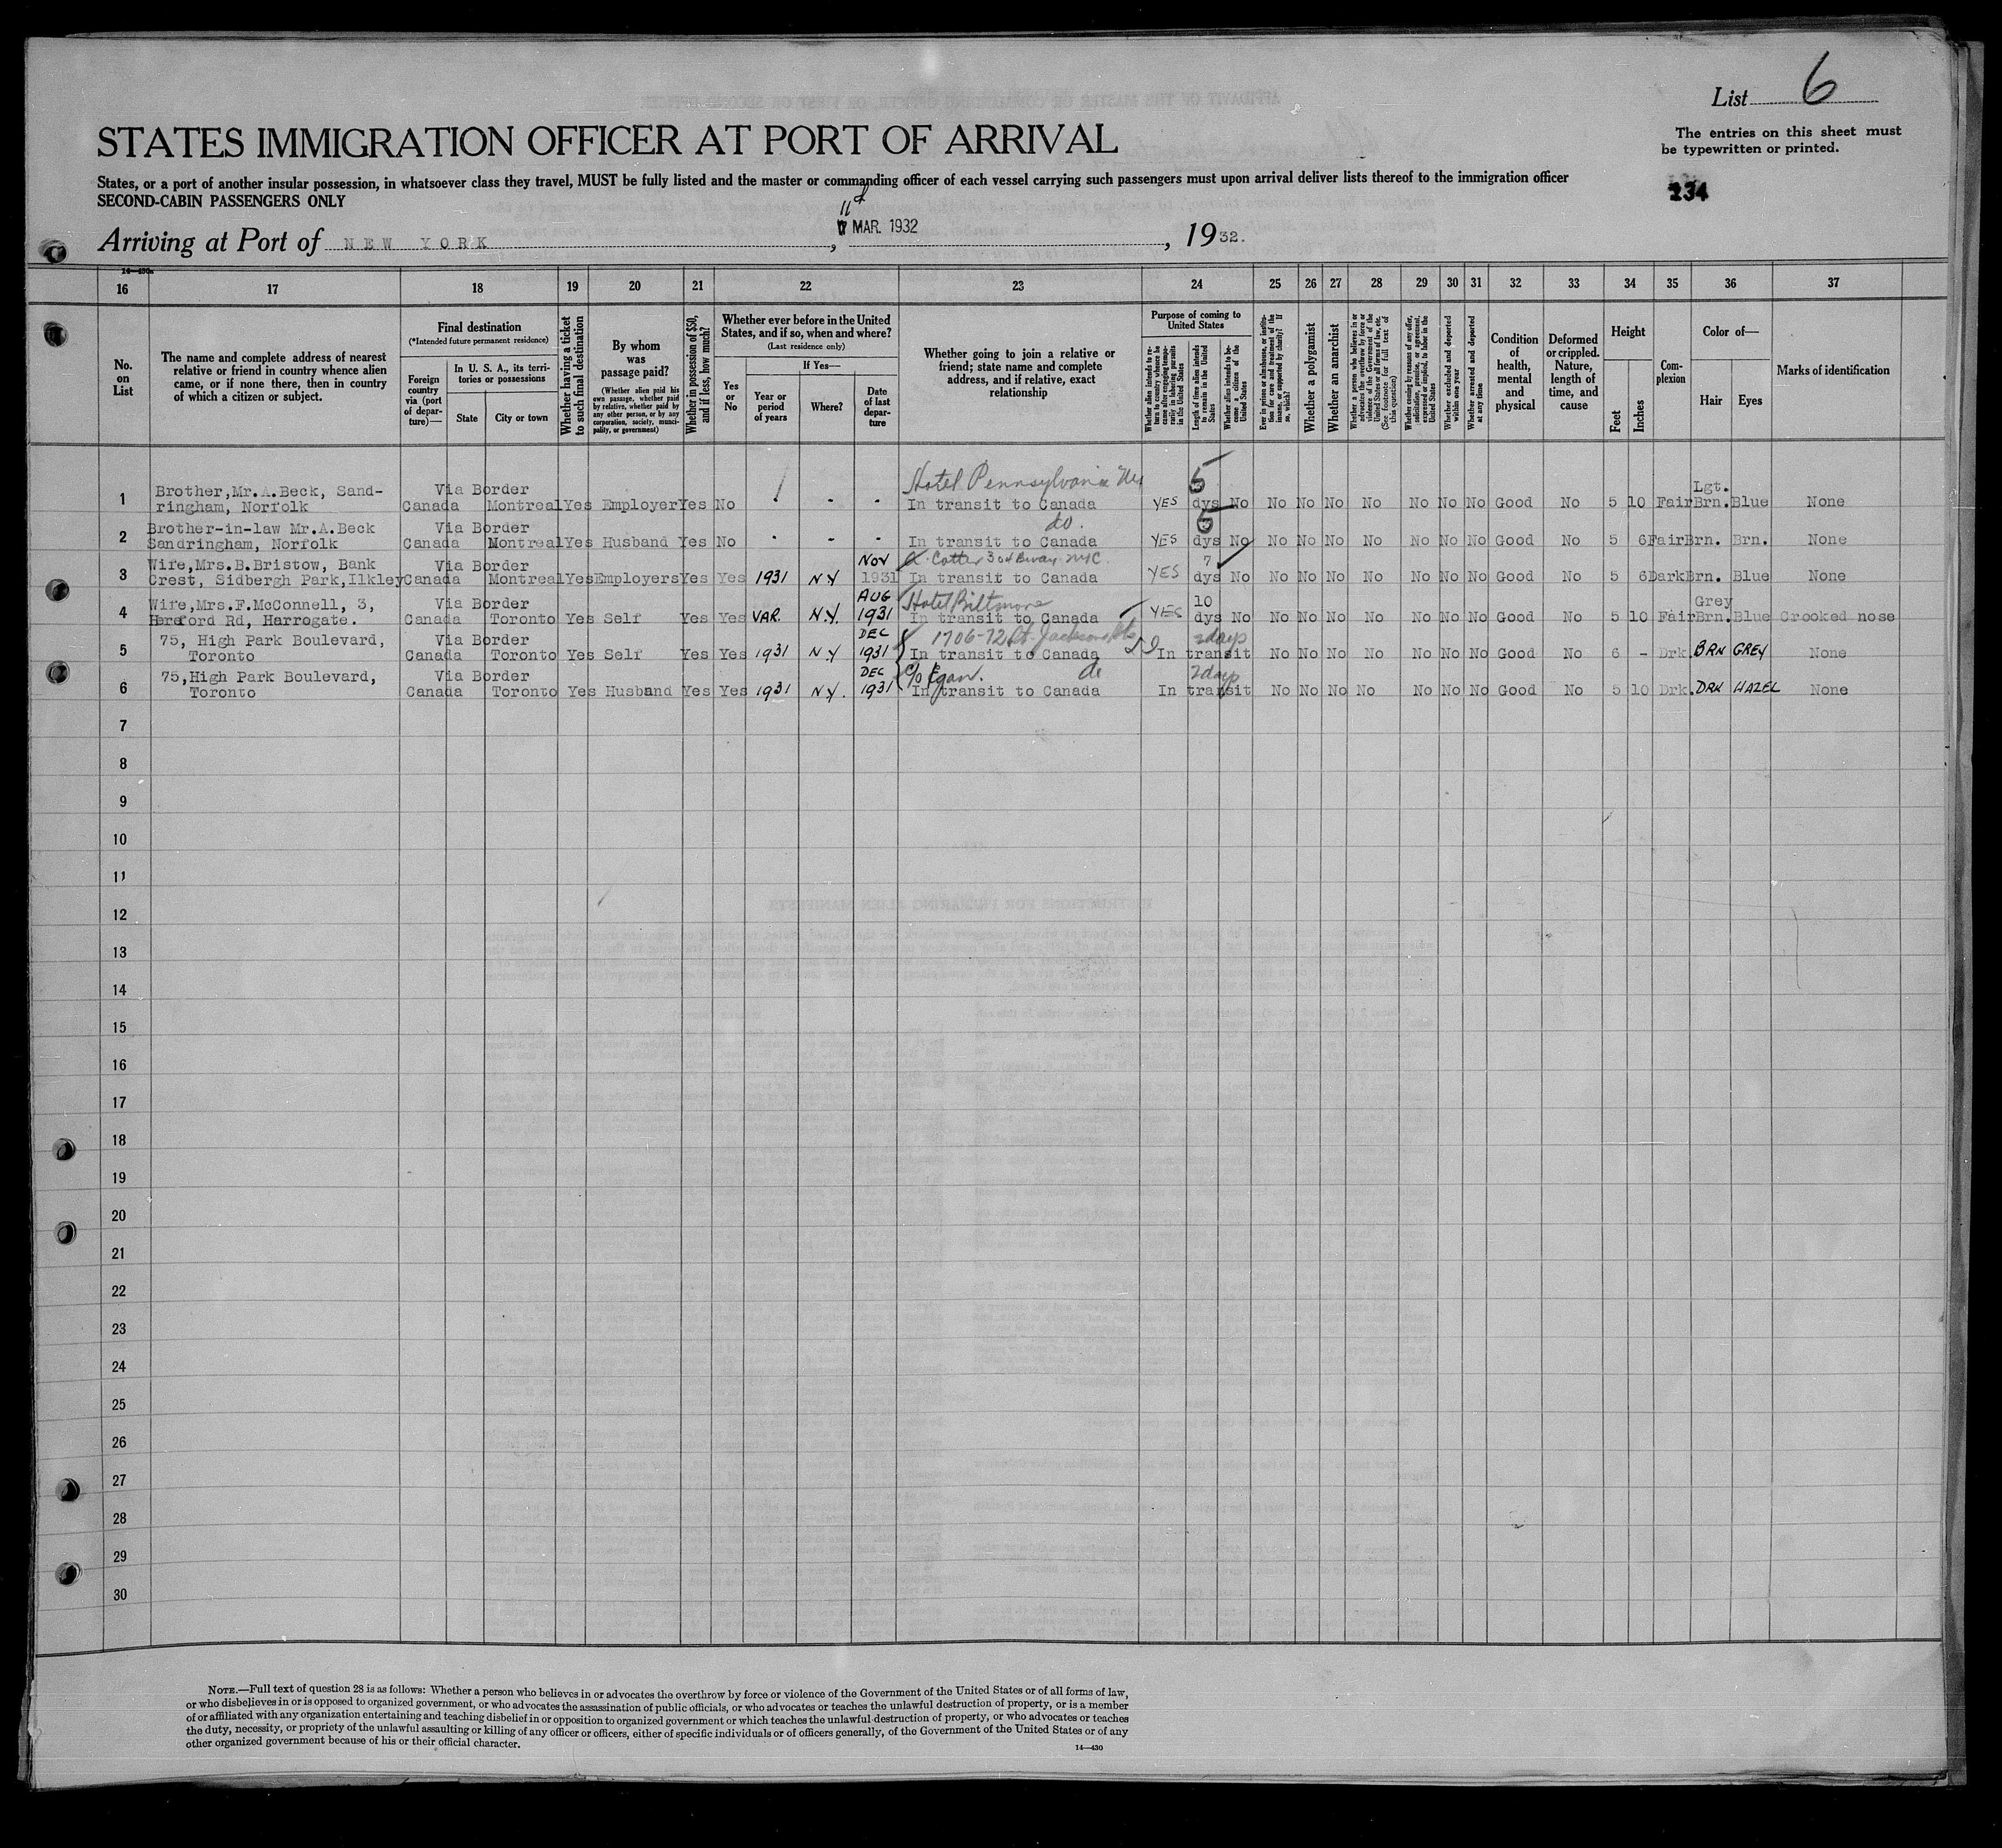 List 6
STATES IMMIGRATION OFFICER AT PORT OF ARRIVAL
The entries on this sheet must
be typewritten or printed.
States, or a port of another insular possession, in whatsoever class they travel, MUST be fully listed and the master or commanding officer of each vessel carrying such passengers must upon arrival deliver lists thereof to the immigration officer
SECOND-CABIN PASSENGERS ONLY
234
Arriving at Port of NEW YORK, 11th MAR. 1932, 1932.
14—430a
16 17 18 19 20 21 22 23 24 25 26 27 28 29 30 31 32 33 34 35 36 37
No. on List
The name and complete address of nearest relative or friend in country whence alien came, or if none there, then in country of which a citizen or subject.
Final destination
(*Intended future permanent residence)
Foreign country via (port of departure)—
In U. S. A., its territories or possessions
State
City or town
Whether having a ticket to such final destination
By whom was passage paid?
(Whether alien paid his own passage, whether paid by relative, whether paid by any other person, or by any corporation, society, municipality, or government)
Whether in possession of $50, and if less, how much?
Whether ever before in the United States, and if so, when and where?
(Last residence only)
Yes or No
If Yes—
Year or period of years
Where?
Date of last departure
Whether going to join a relative or friend; state name and complete address, and if relative, exact relationship
Purpose of coming to United States
Whether alien intends to return to country whence he came after engaging temporarily in laboring pursuits in the United States
Length of time alien intends to remain in the United States
Whether alien intends to become a citizen of the United States
Ever in prison or almshouse, or institution for care and treatment of the insane, or supported by charity? If so, which?
Whether a polygamist
Whether an anarchist
Whether a person who believes in or advocates the overthrow by force or violence of the Government of the United States or all forms of law, etc. (See footnote for full text of this question)
Whether coming by reasons of any offer, solicitation, promise, or agreement, expressed or implied, to labor in the United States
Whether excluded and deported within one year
Whether arrested and deported at any time
Condition of health, mental and physical
Deformed or crippled. Nature, length of time, and cause
Height
Feet
Inches
Complexion
Color of—
Hair
Eyes
Marks of identification
Hotel Pennsylvania 5
Brother,Mr.A.Beck, Sand- Via Border Lgt.
1 ringham, Norfolk Canada Montreal Yes Employer Yes No - - - In transit to Canada YES dys No No No No No No No No Good No 5 10 Fair Brn. Blue None
Brother-in-law Mr.A.Beck Via Border do.
2 Sandringham, Norfolk Canada Montreal Yes Husband Yes No - - - In transit to Canada YES dys No No No No No No No No Good No 5 6 Fair Brn. Brn. None
Wife,Mrs.B.Bristow, Bank Via Border NOV Cotter NYC. 7
3 Crest, Sidbergh Park,Ilkley Canada Montreal Yes Employers Yes Yes 1931 N.Y 1931 In transit to Canada YES dys No No No No No No No No Good No 5 6 Dark Brn. Blue None
Wife,Mrs.F.McConnell, 3, Via Border AUG Hotel Biltmore 10 Grey
4 Hereford Rd, Harrogate. Canada Toronto Yes Self Yes Yes VAR. N.Y. 1931 In transit to Canada YES dys No No No No No No No No Good No 5 10 Fair Brn. Blue Crooked nose
75, High Park Boulevard, Via Border DEC 1706-72 St. Jackson Hts 2 days
5 Toronto Canada Toronto Yes Self Yes Yes 1931 N.Y 1931 In transit to Canada In transit No No No No No No No Good No 6 - Drk BRN GREY None
75,High Park Boulevard, Via Border DEC c/o Egan. do 2 days
6 Toronto Canada Toronto Yes Husband Yes Yes 1931 N.Y. 1931 In transit to Canada In transit No No No No No No No Good No 5 10 Drk. DRK HAZEL None
7
8
9
10
11
12
13
14
15
16
17
18
19
20
21
22
23
24
25
26
27
28
29
30
NOTE.—Full text of question 28 is as follows: Whether a person who believes in or advocates the overthrow by force or violence of the Government of the United States or of all forms of law,
or who disbelieves in or is opposed to organized government, or who advocates the assassination of public officials, or who advocates or teaches the unlawful destruction of property, or is a member
of or affiliated with any organization entertaining and teaching disbelief in or opposition to organized government or which teaches the unlawful destruction of property, or who advocates or teaches
the duty, necessity, or propriety of the unlawful assaulting or killing of any officer or officers, either of specific individuals or of officers generally, of the Government of the United States or of any
other organized government because of his or their official character.
14—430